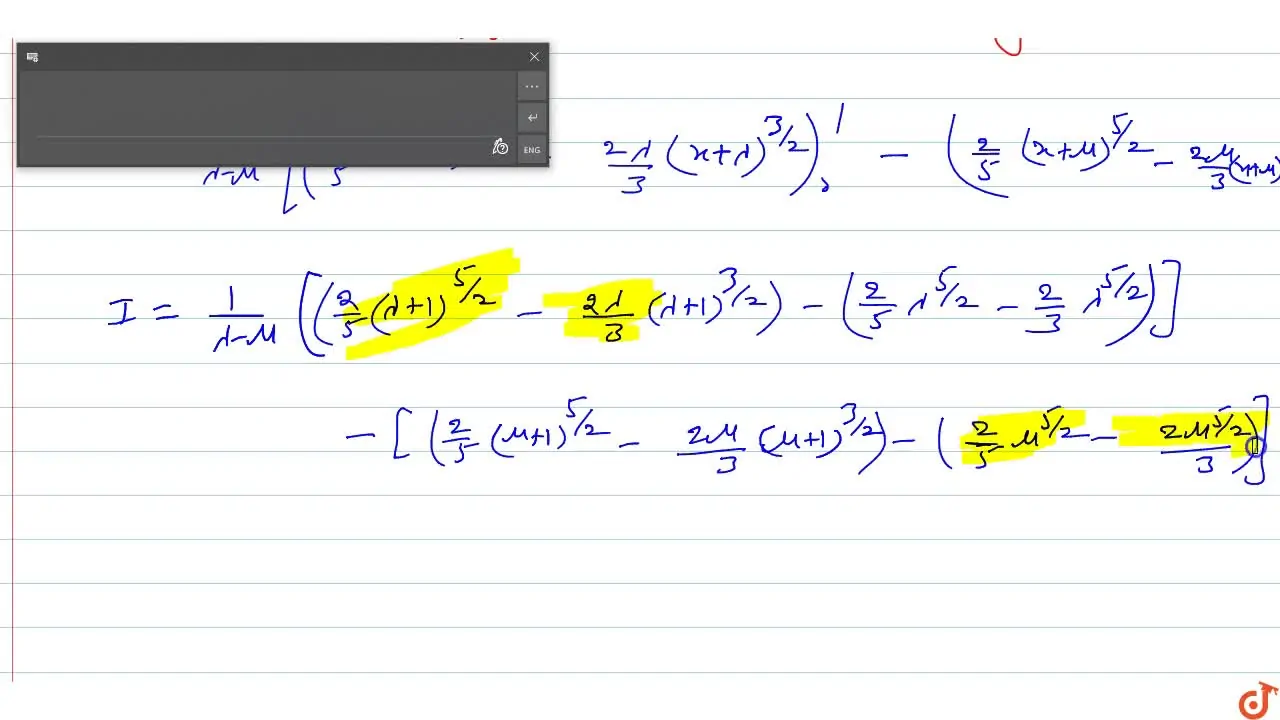 ENG
1/(λ-μ) [(2/5 2λ/3 (x+λ)^{3/2})_0^1 - (2/5 (x+μ)^{5/2} - 2μ/3 (x+μ)
I = 1/(λ-μ) [(2/5 (λ+1)^{5/2} - 2λ/3 (λ+1)^{3/2}) - (2/5 λ^{5/2} - 2/3 λ^{5/2})]
- [(2/5 (μ+1)^{5/2} - 2μ/3 (μ+1)^{3/2}) - (2/5 μ^{5/2} - 2μ^{5/2}/3)]